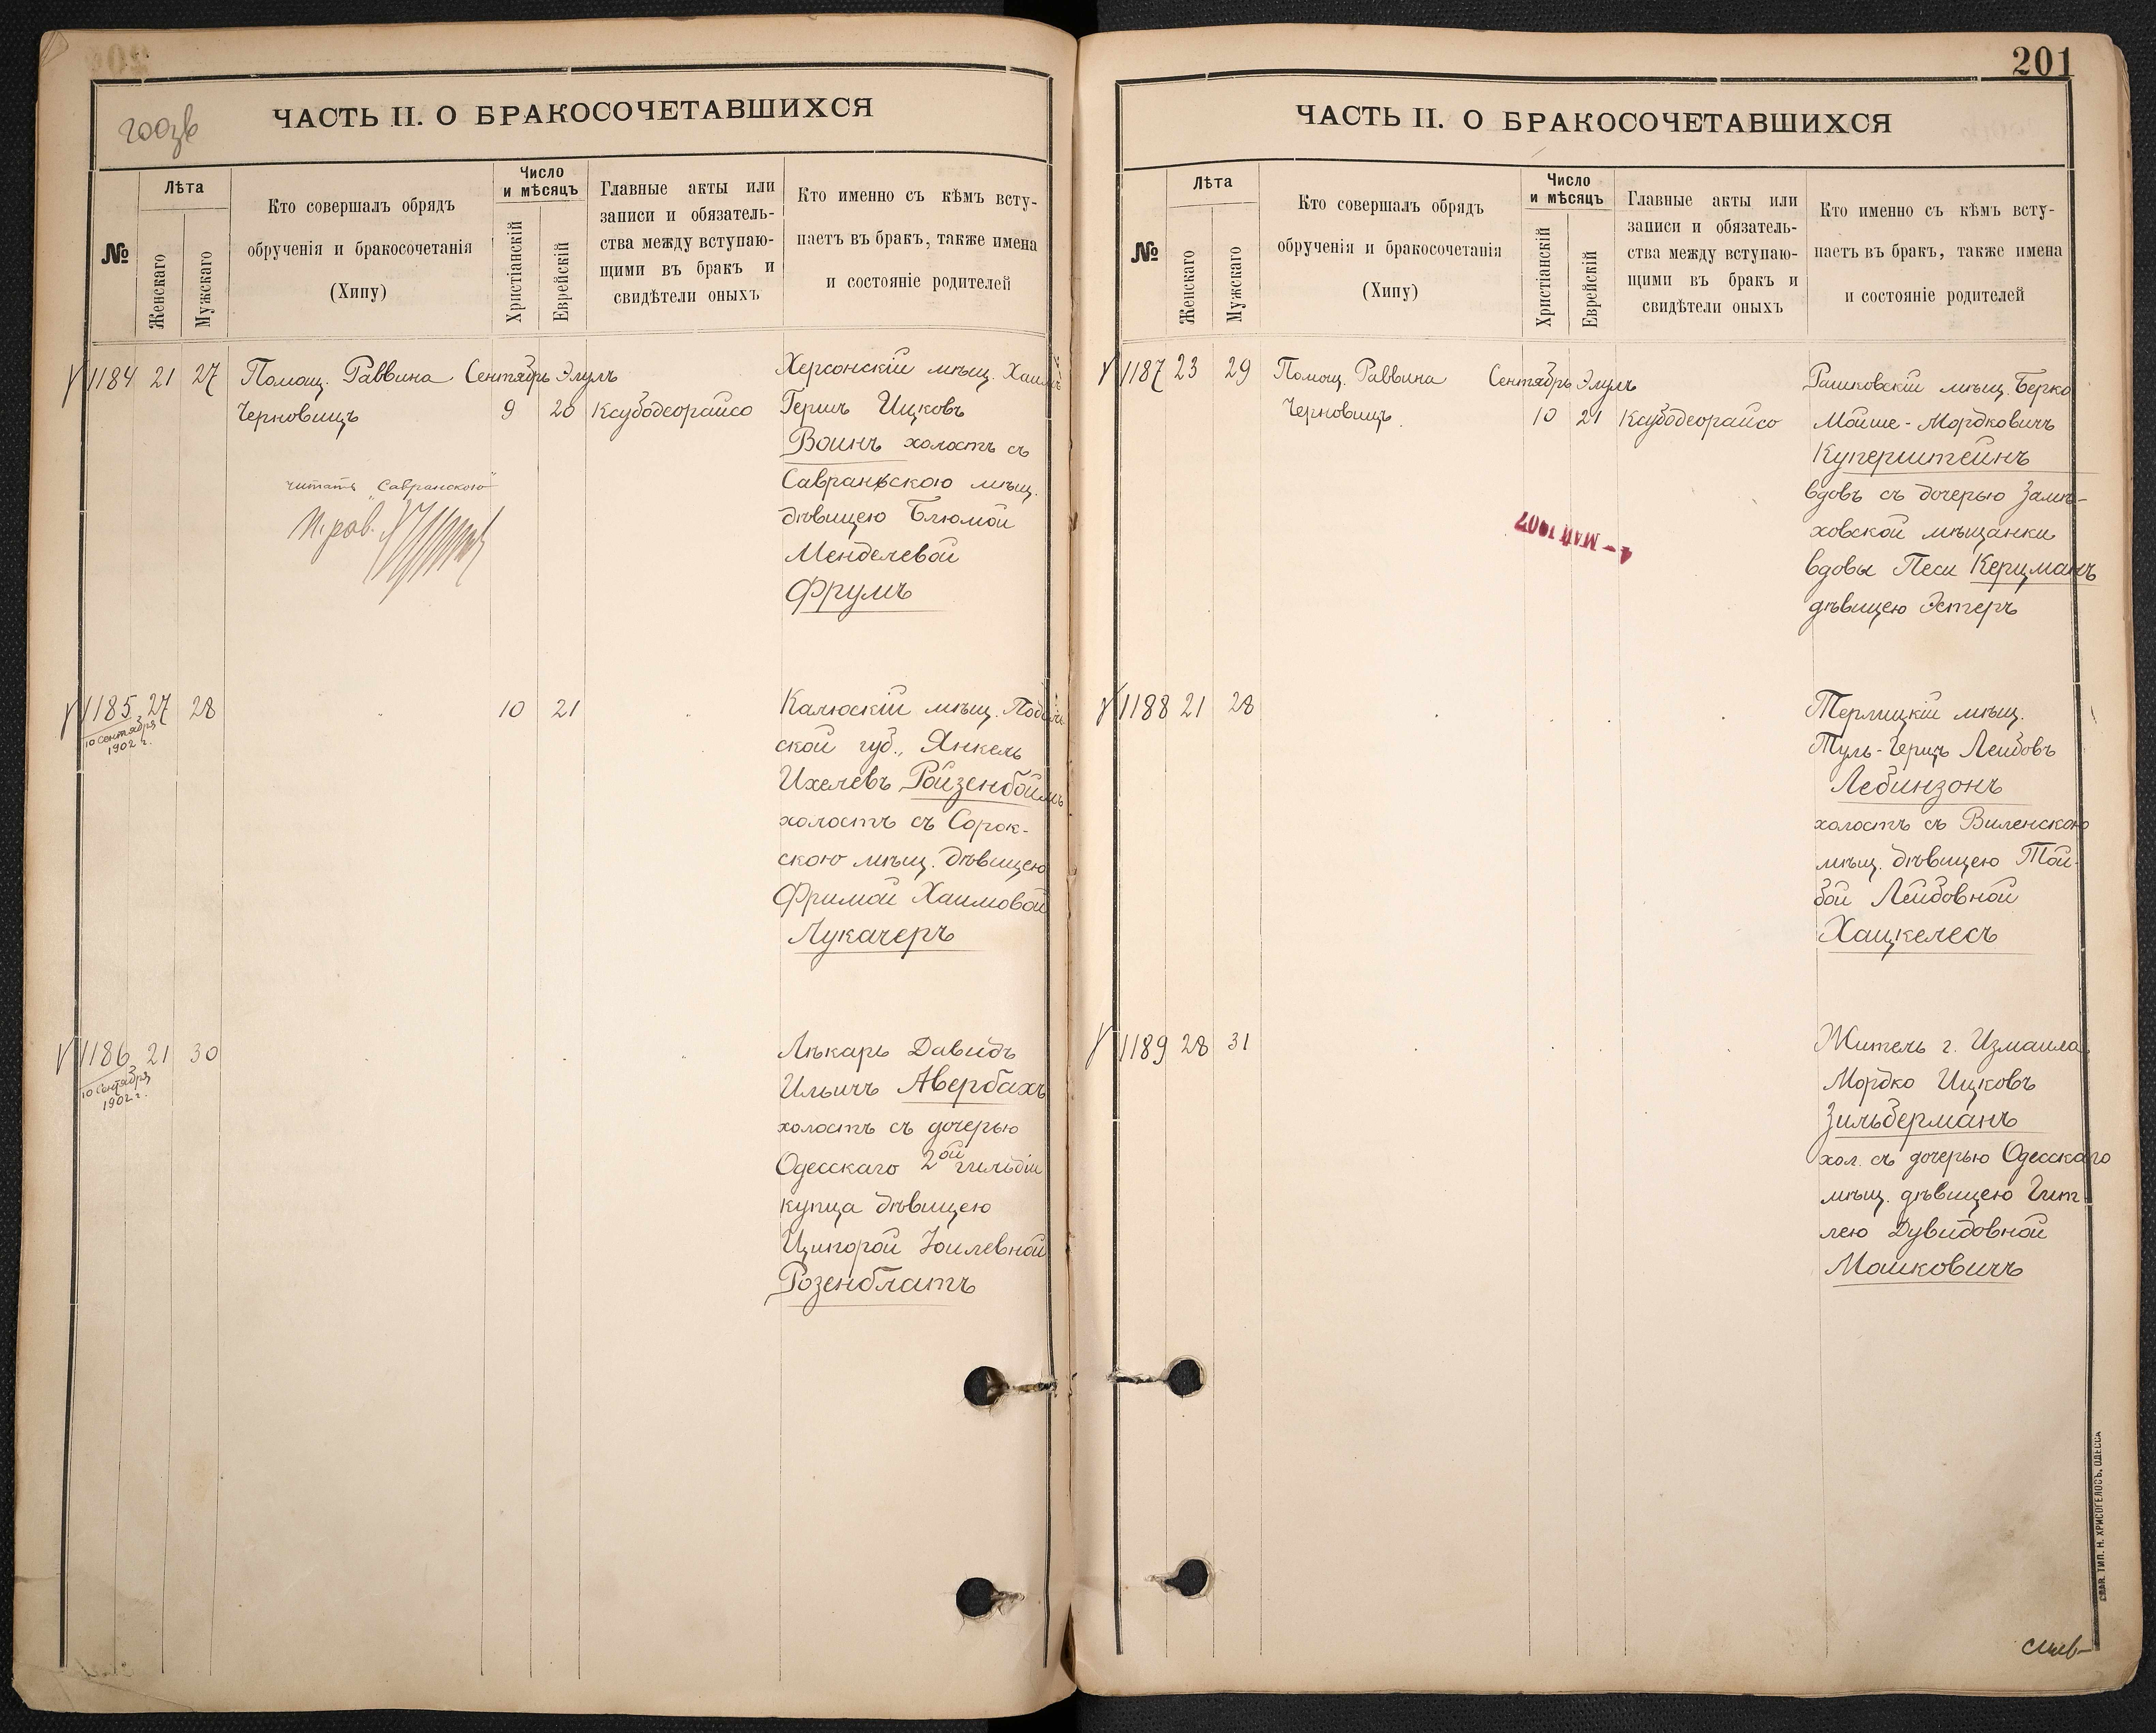 ЧАСТЬ II. О БРАКОСОЧЕТАВШИХСЯ
№
Лѣта
Женскаго
Мужскаго
Кто совершалъ обрядъ
обрученія и бракосочетанія
(Хипу)
Число
и мѣсяцъ
Христіанскій
Еврейскій
Главные акты или
записи и обязатель-
ства между вступаю-
щими въ бракъ и
свидѣтели оныхъ
Кто именно съ кѣмъ всту-
паетъ въ бракъ, также имена
и состояніе родителей
1184 21 27 Помощ. Раввина Сентябрь Элулъ
Черновицъ 9 20 Ксубодеорайсо
Херсонскій мѣщ. Хаимъ
Гершъ Ицковъ
Воинъ холостъ съ
Савранскою мѣщ.
дѣвицею Блюмой
Менделевой
Фрумъ
читать „Савранскою"
1185 27 28 10 21
10 сентября
1902 г.
Калюскій мѣщ. Подоль
ской губ., Янкель
Ихелевъ Ройзенбоймъ
холостъ съ Сорок-
скою мѣщ. дѣвицею
Фримой Хаимовой
Лукачеръ
1186 21 30
10 сентября
1902 г.
Лѣкарь Давидъ
Ильичъ Авербахъ
холостъ съ дочерью
Одесскаго 2ой гильдіи
купца дѣвицею
Ципорой Іоилевной
Розенблатъ
201
ЧАСТЬ II. О БРАКОСОЧЕТАВШИХСЯ
№
Лѣта
Женскаго
Мужскаго
Кто совершалъ обрядъ
обрученія и бракосочетанія
(Хипу)
Число
и мѣсяцъ
Христіанскій
Еврейскій
Главные акты или
записи и обязатель-
ства между вступаю-
щими въ бракъ и
свидѣтели оныхъ
Кто именно съ кѣмъ всту-
паетъ въ бракъ, также имена
и состояніе родителей
1187 23 29 Помощ. Раввина Сентябрь Элулъ
Черновицъ 10 21 Ксубодеорайсо
Рашковскій мѣщ. Берко
Мойше-Мордковичъ
Куперштейнъ
вдовъ съ дочерью Замѣ-
ховской мѣщанки
вдовы Песи Керцманъ
дѣвицею Эстеръ
4 - МАЙ 1907
1188 21 28
Терлицкій мѣщ.
Туль-Герцъ Лейбовъ
Лебинзонъ
холостъ съ Виленскою
мѣщ. дѣвицею Той-
бой Лейбовной
Хацкелесъ
1189 28 31
Житель г. Измаила
Мордко Ицковъ
Зильберманъ
хол. съ дочерью Одесскаго
мѣщ. дѣвицею Гит-
лею Дувидовной
Машковичъ
СЛАВ. ТИП. Н. ХРИСОГЕЛОСЪ, ОДЕССА